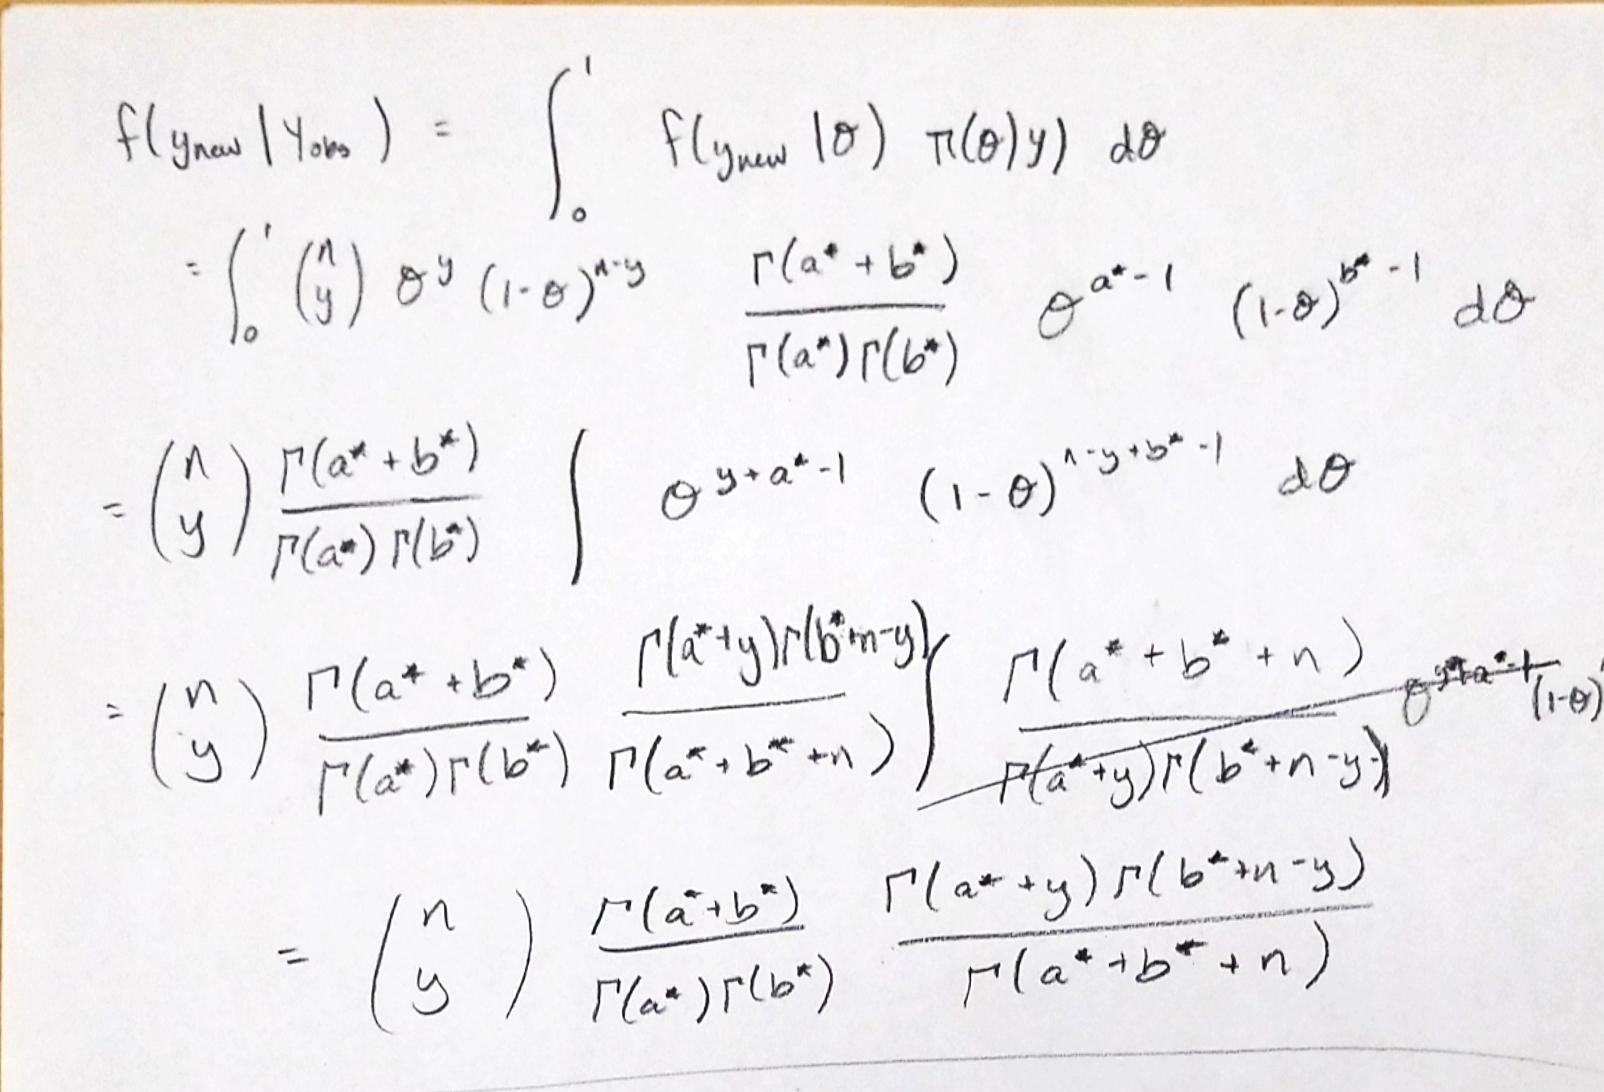 f(y_new | Y_obs) = ∫₀¹ f(y_new | θ) π(θ|y) dθ
= ∫₀¹ (n y) θ^y (1-θ)^(n-y) Γ(a* + b*) / Γ(a*)Γ(b*) θ^(a*-1) (1-θ)^(b*-1) dθ
= (n y) Γ(a* + b*) / Γ(a*)Γ(b*) ∫ θ^(y+a*-1) (1-θ)^(n-y+b*-1) dθ
= (n y) Γ(a* + b*) / Γ(a*)Γ(b*) Γ(a*+y)Γ(b*+n-y) / Γ(a*+b*+n) ∫ Γ(a* + b* + n) / Γ(a*+y)Γ(b*+n-y) θ^(y+a*-1) (1-θ)
= (n y) Γ(a*+b*) / Γ(a*)Γ(b*) Γ(a*+y)Γ(b*+n-y) / Γ(a*+b*+n)